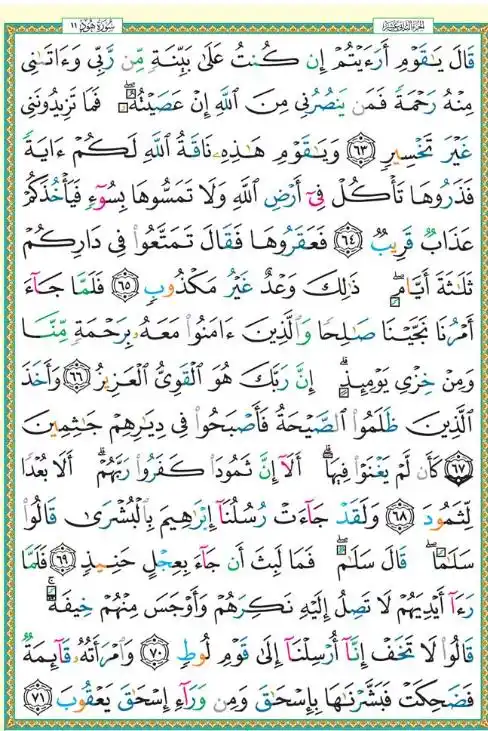 الجزء الثاني عشر سورة هود ١١
قَالَ يَٰقَوْمِ أَرَءَيْتُمْ إِن كُنتُ عَلَىٰ بَيِّنَةٍ مِّن رَّبِّى وَءَاتَىٰنِى
مِنْهُ رَحْمَةً فَمَن يَنصُرُنِى مِنَ ٱللَّهِ إِنْ عَصَيْتُهُۥ ۖ فَمَا تَزِيدُونَنِى
غَيْرَ تَخْسِيرٍ ٦٣ وَيَٰقَوْمِ هَٰذِهِۦ نَاقَةُ ٱللَّهِ لَكُمْ ءَايَةً
فَذَرُوهَا تَأْكُلْ فِىٓ أَرْضِ ٱللَّهِ وَلَا تَمَسُّوهَا بِسُوٓءٍ فَيَأْخُذَكُمْ
عَذَابٌ قَرِيبٌ ٦٤ فَعَقَرُوهَا فَقَالَ تَمَتَّعُوا۟ فِى دَارِكُمْ
ثَلَٰثَةَ أَيَّامٍ ۖ ذَٰلِكَ وَعْدٌ غَيْرُ مَكْذُوبٍ ٦٥ فَلَمَّا جَآءَ
أَمْرُنَا نَجَّيْنَا صَٰلِحًا وَٱلَّذِينَ ءَامَنُوا۟ مَعَهُۥ بِرَحْمَةٍ مِّنَّا
وَمِنْ خِزْىِ يَوْمِئِذٍ ۗ إِنَّ رَبَّكَ هُوَ ٱلْقَوِىُّ ٱلْعَزِيزُ ٦٦ وَأَخَذَ
ٱلَّذِينَ ظَلَمُوا۟ ٱلصَّيْحَةُ فَأَصْبَحُوا۟ فِى دِيَٰرِهِمْ جَٰثِمِينَ
٦٧ كَأَن لَّمْ يَغْنَوْا۟ فِيهَآ ۗ أَلَآ إِنَّ ثَمُودَا۟ كَفَرُوا۟ رَبَّهُمْ ۗ أَلَا بُعْدًا
لِّثَمُودَ ٦٨ وَلَقَدْ جَآءَتْ رُسُلُنَآ إِبْرَٰهِيمَ بِٱلْبُشْرَىٰ قَالُوا۟
سَلَٰمًا ۖ قَالَ سَلَٰمٌ ۖ فَمَا لَبِثَ أَن جَآءَ بِعِجْلٍ حَنِيذٍ ٦٩ فَلَمَّا
رَءَآ أَيْدِيَهُمْ لَا تَصِلُ إِلَيْهِ نَكِرَهُمْ وَأَوْجَسَ مِنْهُمْ خِيفَةً ۚ
قَالُوا۟ لَا تَخَفْ إِنَّآ أُرْسِلْنَآ إِلَىٰ قَوْمِ لُوطٍ ٧٠ وَٱمْرَأَتُهُۥ قَآئِمَةٌ
فَضَحِكَتْ فَبَشَّرْنَٰهَا بِإِسْحَٰقَ وَمِن وَرَآءِ إِسْحَٰقَ يَعْقُوبَ ٧١